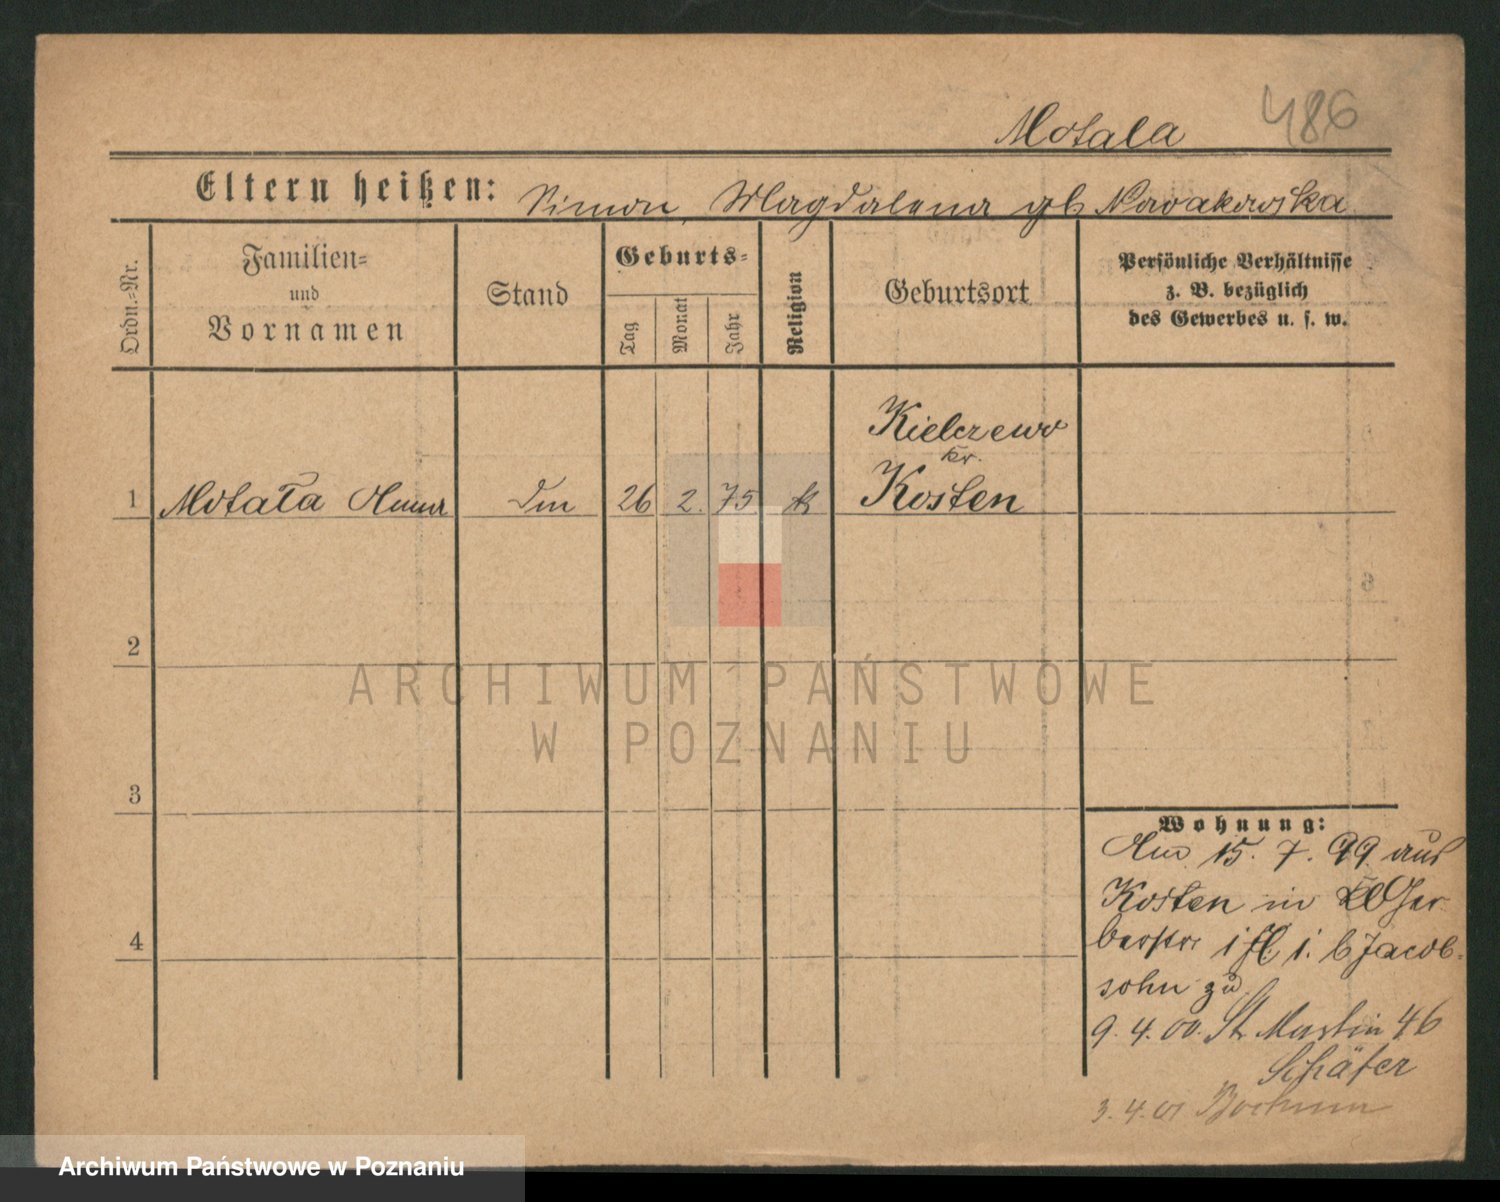 486
Motala
Eltern heißen: Simon, Magdalena gb Nowakowska
Ordn.-Nr.
Familien-
und
Vornamen
Stand
Geburts-
Tag
Monat
Jahr
Religion
Geburtsort
Persönliche Verhältnisse
z. B. bezüglich
des Gewerbes u. s. w.
Kielczewo
Kr.
1 Motała Anna 26 2. 75 k Kosten
2
3
4
Wohnung:
15. 7. 99 aus
Kosten in Ger-
berstr. b Jacob-
sohn zu
9. 4. 00. St. Martin 46
Schäfer
3. 4. 01 Bochum
ARCHIWUM PAŃSTWOWE
W POZNANIU
Archiwum Państwowe w Poznaniu